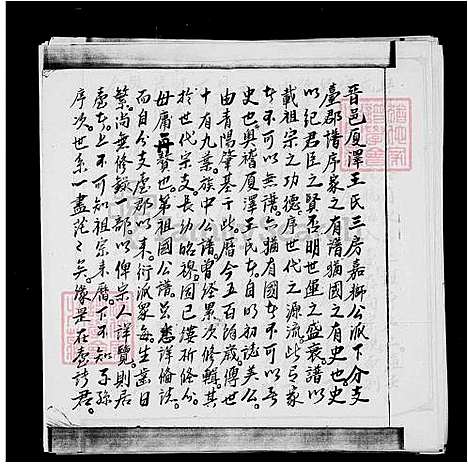 晉邑厦澤王氏三房嘉獅公派下分支
臺郡譜序家之有譜猶國之有史也史
以紀君臣之賢否明世運之盛衰譜以
載祖宗之功德序世代之源流此有家
者不可以無譜亦猶有國者不可以無
史也奥稽厦澤王氏者自明初諡英公
由青陽肇基于此暦今五百餘歲傳世
十有九葉族中公譜曾經累次修輯其
於世代宗支長幼昭穆固已縷析條分
毋庸再贅也第祖國公譜只悉詳備該
而自分支臺郡以來衍派眾多生齒日
繁尚無修錄一部以俾宗人詳覽則居
臺者上不可知祖宗來暦下不知子孫
序次世系一盡茫々矣緣是在臺諸君